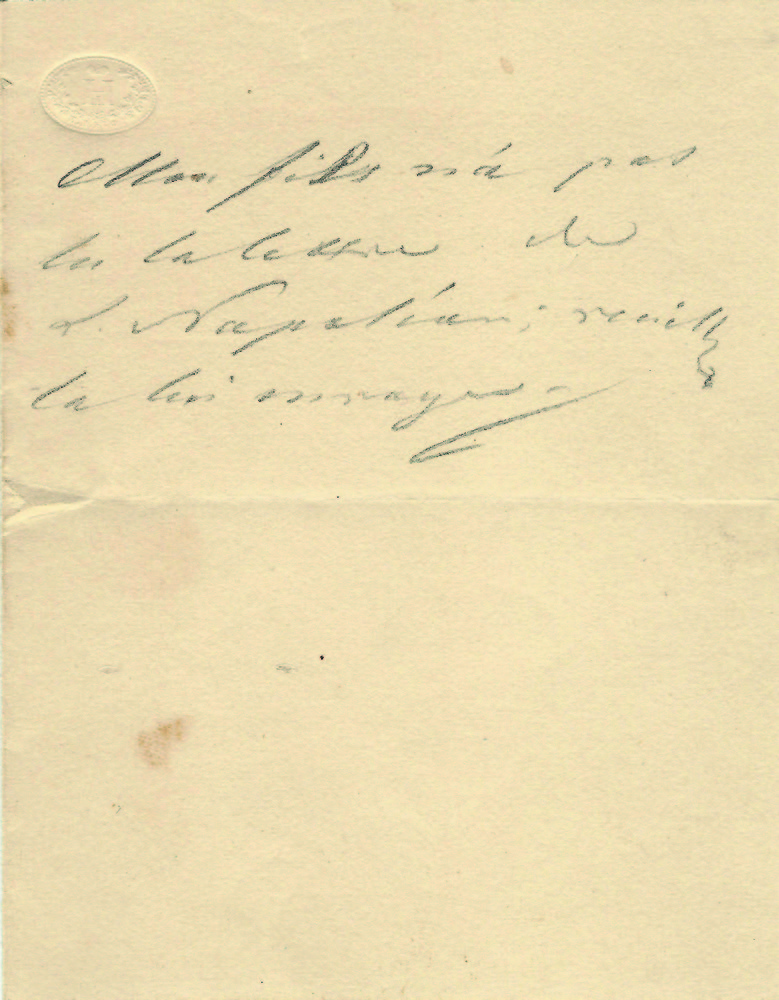 Mon fils n'á pas
lu la lettre de
L. Napoléon; veuillez
la lui envoyer -